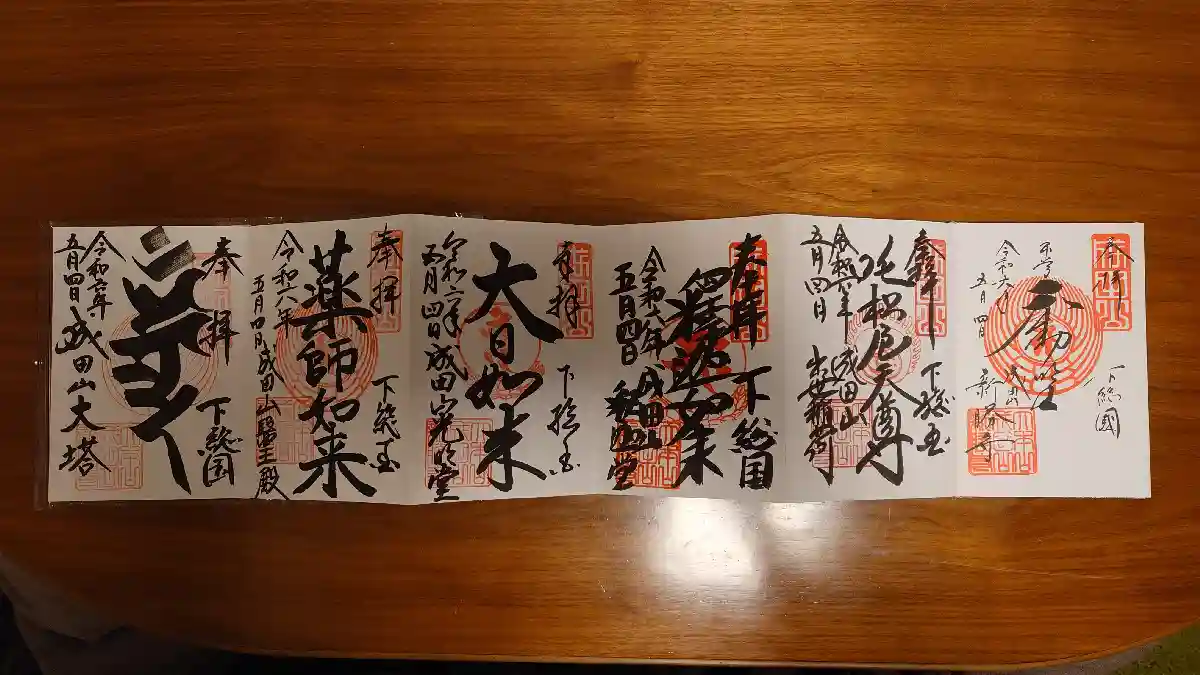 奉拝
下総國
不動明王
令和六年
五月四日
成田山
新勝寺
奉拝
下総国
吒枳尼天尊
令和六年
五月四日
成田山
出世稲荷
奉拝
下総国
釋迦如来
令和六年
五月四日
成田山
奉拝
下総国
大日如来
令和六年
五月四日
成田山光明堂
奉拝
下総国
薬師如来
令和六年
五月四日
成田山醫王殿
奉拝
下総国
令和六年
五月四日
成田山大塔